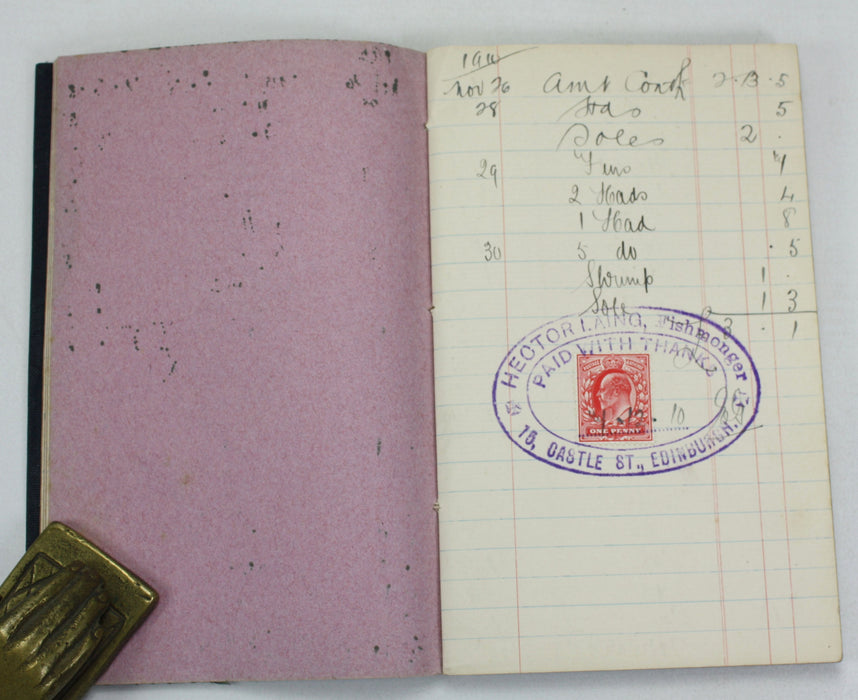 1910
Nov 26 Amt Contd 2 . 13 . 5
28 Hds 5
Soles 2 .
29 Fins
2 Hads 4
1 Had 8
30 5 do . 5
Shrimp 1 .
Sole 1 3
£ 3 . 1
HECTOR LAING, Fishmonger
PAID WITH THANKS
ONE PENNY
12 . 10
16, CASTLE ST., EDINBURGH.